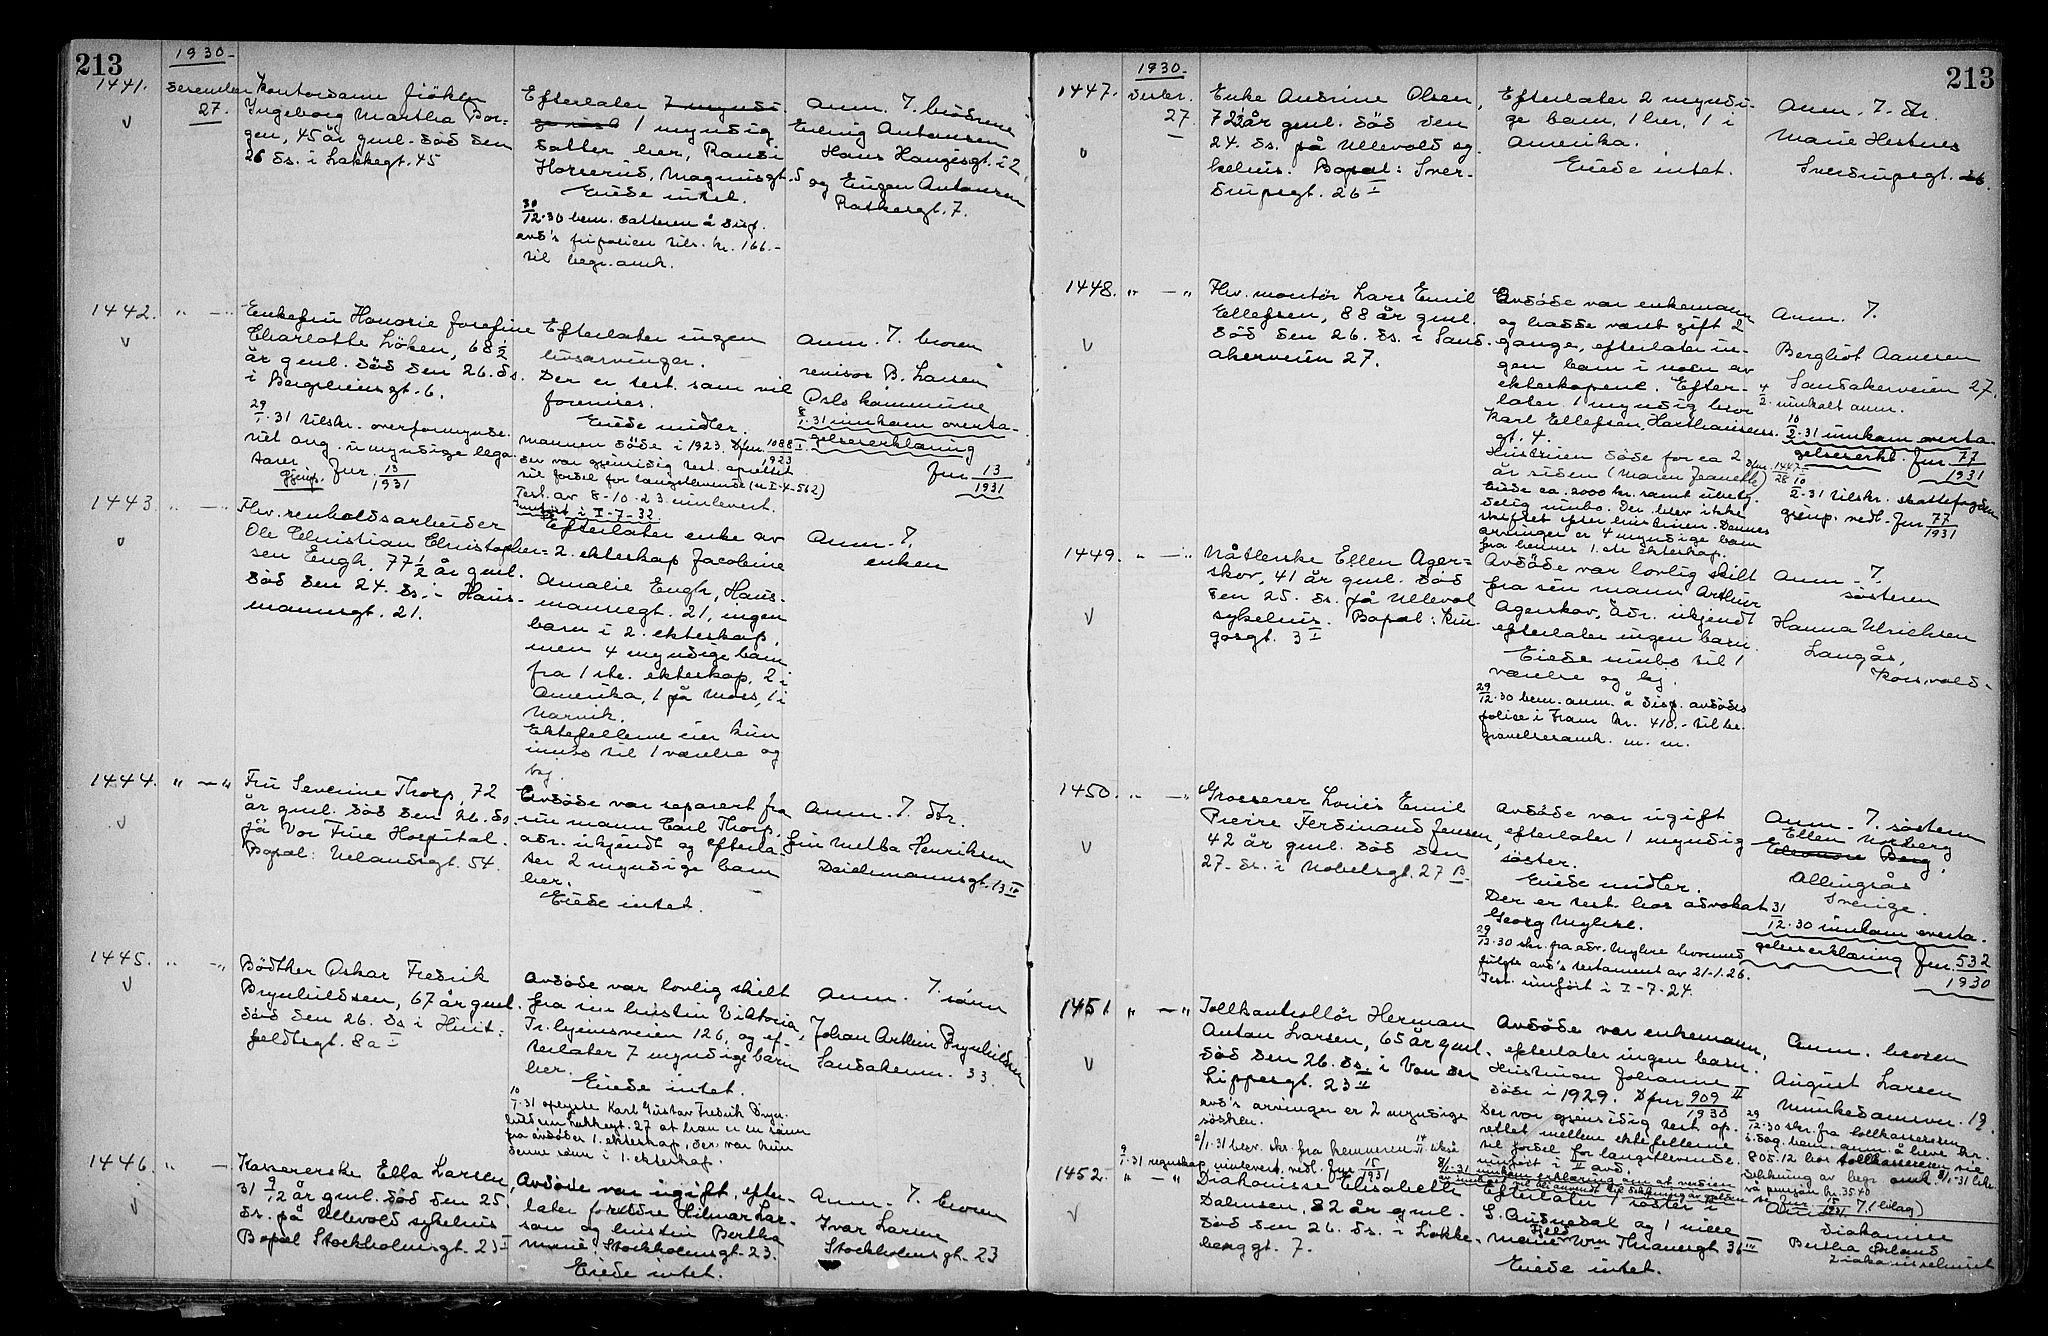 213
1930.
1441.
27.
Ingeborg Martha Bor-
gen, 45 år gml. död den
26 ds. i Lakkegt. 45
Efterlater
1 myndig
datter her, Randi
Horserud, Magnusgt. 5
Eiede intet.
30/12.30 bem. datteren å disp.
avd's fripolise kr. 166.-
til begr. omk.
Anm. 7. brödrene
Erling Antonsen
Hans Haugesgt. 12,
og Eugen Antonsen
Ratkesgt. 7.
1442. " — "
Enkefru Honorie Josefine
Charlotte Löken, 68 1/2
år gml. död den 26. ds.
i Bergsliensgt. 6.
29/1.31 tilskr. overformynde.
ret ang. umyndige lega-
tarer. Jnr. 13/1931
Efterlater ingen
livsarvinger.
Der er test. som vil
forevises.
Eiede midler.
Mannen döde i 1923. Dfnr. 1088/923 I
der var gjensidig test. oprettet
til fordel for lengstlevende (se I-4-562)
Test. av 8-10-23 innlevert.
Innfört i I-7-32.
Anm. 7. broren
revisor B. Larsen
Oslo kommune
8/1.31 innkom overta-
gelseserklæring
Jnr 13/1931
1443 " — "
Fhv. renholdsarbeider
Ole Christian Christopher-
sen Engh, 77 1/2 år gml.
död den 24. ds. i Haus-
mannsgt. 21.
Efterlater enke av
2. ekteskap Jacobine
Amalie Engh, Haus-
mannsgt. 21, ingen
barn i 2. ekteskap,
men 4 myndige barn
fra 1ste. ekteskap, 2 i
Amerika, 1 på Moss, 1 i
Narvik.
Ektefellene eier kun
innbo til 1 værelse og
kj.
Anm. 7.
enken
1444. " — "
Fru Severine Thorp, 72
år gml. död den 26. ds.
på Vor Frue Hospital.
Bopæl: Uelandsgt. 54.
Avdöde var separert fra
sin mann Carl Thorp,
adr. ukjendt og efterla-
ter 2 myndige barn
her.
Eiede intet.
Anm. 7. dtr.
fru Melba Henriksen
Deichmannsgt. 13 II
1445. " — "
Bödtker Oskar Fredrik
Brynhildsen, 67 år gml.
död den 26. ds i Huit-
feldtsgt. 8a I
Avdöde var lovlig skilt
fra sin hustru Viktoria,
Tr.hjemsveien 126, og ef-
terlater 7 myndige barn
her.
Eiede intet.
10/1.31 oplyste Karl Gustav Fredrik Bryn-
hildsen Lakkegt. 27 at han er en sönn
fra avdödes 1. ekteskap, der var kun
denne sönn i 1. ekteskap.
Anm. 7. sönn
Johan Arthur Brynhildsen
Sandakerv. 33.
1446. " —
Kassererske Ella Larsen,
31 9/12 år gml. död den 25.
ds. på Ullevold sykehus
Bopæl Stockholmsgt. 23 I
Avdöde var ugift, efter-
later foreldre Hilmar Lar-
sen og hustru Bertha
Marie, Stockholmsgt. 23.
Eiede intet.
Anm. 7. broren
Ivar Larsen
Stockholmsgt. 23
213
1930.
1447. Desbr.
27.
Enke Andrine Olsen,
72 1/2 år gml. död den
24. ds. på Ullevold sy-
kehus. Bopæl: Sver-
drupsgt. 26 I
Efterlater 2 myndi-
ge barn, 1 her, 1 i
Amerika.
Eiede intet.
Anm. 7. dtr.
Marie Hestnes
Sverdrupsgt. 26.
1448. " — "
Fhv. montör Lars Emil
Ellefsen, 88 år gml.
död den 26. ds. i Sand-
akerveien 27.
Avdöde var enkemann
og hadde vært gift 2
gange, efterlater in-
gen barn i noen av
ekteskapene. Efter-
later 1 myndig bror
Karl Ellefsen, Hasthausens-
gt. 4.
Hustruen döde for ca 2
år siden (Maren Jeanette)
Eiede ca. 2000 kr. samt ubety-
delig innbo. Der blev ikke
skiftet efter hustruen. Dennes
arvinger er 4 myndige barn
fra hennes 1ste ekteskap.
Anm. 7.
Bergliot Aanesen
Sandakerveien 27.
4/2. innkalt anm.
10/2.31 innkom overta-
gelseserkl. Jnr. 77/1931
10/2.31 tilskr. skattefogden
Jnr 77/1931
1449. " — "
Nåtlerske Ellen Ager-
skov, 41 år gml. död
den 25. ds. på Ullevol
sykehus. Bopæl: Rin-
gosgt. 3 I
Avdöde var lovlig skilt
fra sin mann Arthur
Agerskov, adr. ukjendt
efterlater ingen barn.
Eiede innbo til 1
værelse og kj.
29/12.30 bem. anm. å disp. avdödes
police i Fram kr. 410.- til be-
gravelsesomk. m. m.
Anm. 7.
søsteren
Hanna Ulrichsen
Langås,
Korsvold.
1450. " — "
Grosserer Louis Emil
Pierre Ferdinand Jensen,
42 år gml. död den
27. ds. i Nobelsgt. 27 B.
Avdöde var ugift
efterlater 1 myndig
söster.
Eiede midler.
Der er test. hos advokat
Georg Myhre.
29/12.30 skr. fra adv. Myhre hvormed
fulgte avd's testament av 21-1.26.
Test. innfört i I-7-24.
Anm. 7. söstern
Ellen Norberg
Eleonore Berg,
Allingsås
Sverige.
31/12.30 innkom overta-
gelseserklæring Jnr. 532/1930
1451 " — "
Tollkontrollör Herman
Anton Larsen, 65 år gml.
död den 26. ds. i Van der
Lippesgt. 23 II
avd's arvinger er 2 myndige
söskn.
Avdöde var enkemann,
efterlater ingen barn.
Hustruen Johanne
döde i 1929. Dfnr 909/1930 II
Der var gjensidig test. op-
rettet mellem ektefellene
til fordel for lengstlevende.
innfört i II avd.
Anm. broren
August Larsen
Munkedamsv. 19.
29/12.30 skr. fra tollkassereren
i dag bem. anm. å heve kr.
805.12 hos tollkassereren
9/1.31 regnskap innlevert. vedl. Jnr 15/1931
1452. " — "
Diakonisse Elisabeth
Dalmsen, 82 år gml.
död den 26. ds. i Lokke-
berggt. 7.
Efterlater 1 söster i
S. Audnedal og 1 niese
Marie Wm Thranesgt 36 III
Eiede intet.
Anm.
diakonisse
Bertha Örland
Diakonissehuset